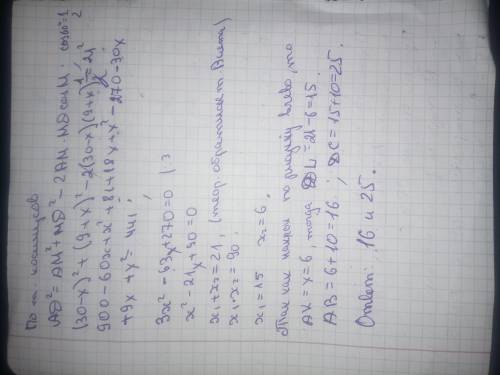 По т. косинусов
AD² = AM² + MD² - 2AM · MD cos M . cos60° = 1/2
(30-x)² + (9+x)² - 2(30-x)(9+x) 1/2 = 21²
900 - 60x + x² + 81 + 18x + x² - 270 - 30x
+ 9x + x² = 441;
3x² - 63x + 270 = 0 | :3
x² - 21x + 90 = 0
x₁ + x₂ = 21, (теор. обратная т. Виета)
x₁ · x₂ = 90;
x₁ = 15 x₂ = 6.
Так как наклон по рисунку влево, то
AK = x = 6, тогда DL = 21 - 6 = 15.
AB = 6 + 10 = 16 ; DC = 15 + 10 = 25.
Ответ: 16 и 25.